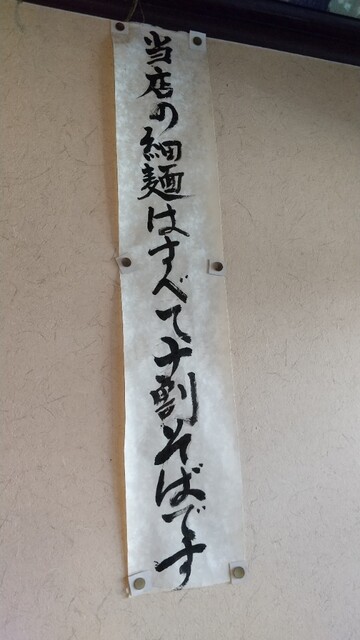 当店の細麺はすべて十割そばです